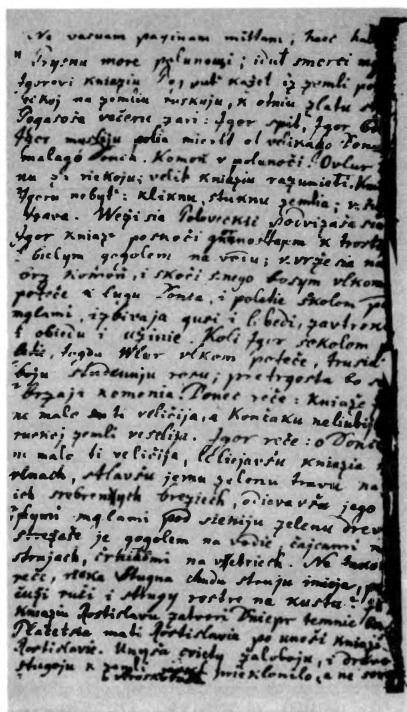 Ne vacuam paginam mittam; haec hab
Prysnu more polunoszi; idut smorci mg
Igorevi kniaziu Bog put kažet iz zemli po
leckoj na zemliu ruskuju, k otniu zlatu st
Pogasoša večeru zari: Igor spit, Igor bd
Igor mysliju polia mierit ot velikago Donu
malago Donca. Komoń v polunoči. Ovlur
nu za riekoju; velit kniaziu razumieti. Kn
Igoru nebyt: kliknu, stuknu zemlia; v. šu
trava. Weži sia Poloveckii podvizaša sia
Igor kniaz poskoči gornostajem k trosti
i bielym gogolem na vodu; v.vrže sia na
brz komoń, i skoči s nego bosym vlkom
poteče k lugu Donca, i poletie sokolem po
mglami, izbivaja gusi i lebedi, zavtroku
i obiedu i užinie. Koli Igor sokolem
letie, togda Wlur vlkom poteče, trusia
boju studenuju rosu; pretrgosta bo s
brzaja komonia. Donec reče: Kniaže
ne malo ti veličija, a Končaku neliubija
ruskoj zemli veselija. Igor reče: o Donče
ne malo ti veličija, leliejavšu kniazia n
vlnach, stlavšu jemu zelenu travu na
ich srebrenych breziech, odievavšu jego
mglami pod sieniju zelenu drev
strežaše je gogolem na vodie, čajcami n
strujach, črniadmi na vietriech. Ne tako
reče, rieka Stugna chudu struju imieja, p
čuži ruči i strugy rostre na kustu
kniaziu Rostislavu zatvori Dniepr temnie
Plačetsia mati Rostislavia po unoši kniazi
Rostislavie. Unyša cviety žaloboju, i drevo
stugoju k zemli prieklonilo, a ne soro